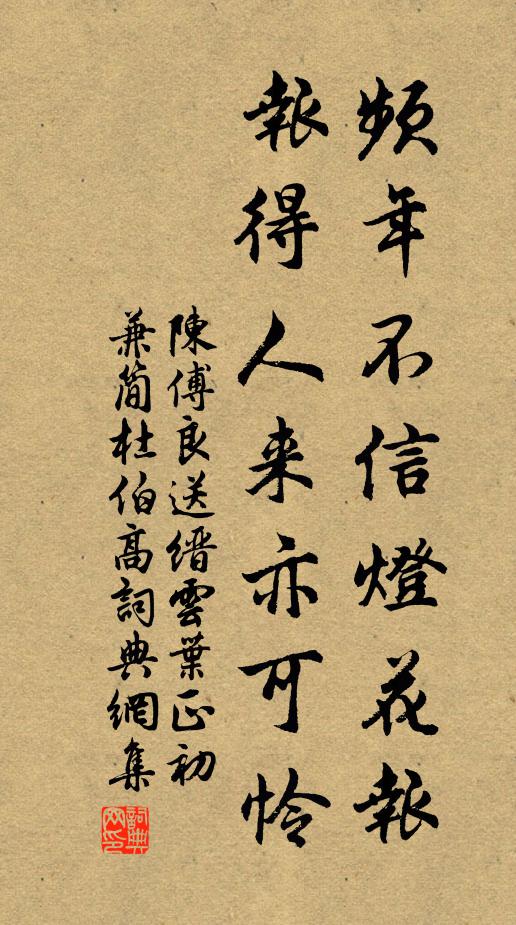 頻年不信燈花報
報得人来亦可怜
陳傅良送縉雲葉正初
兼簡杜伯高詞典網集
詞典
网印